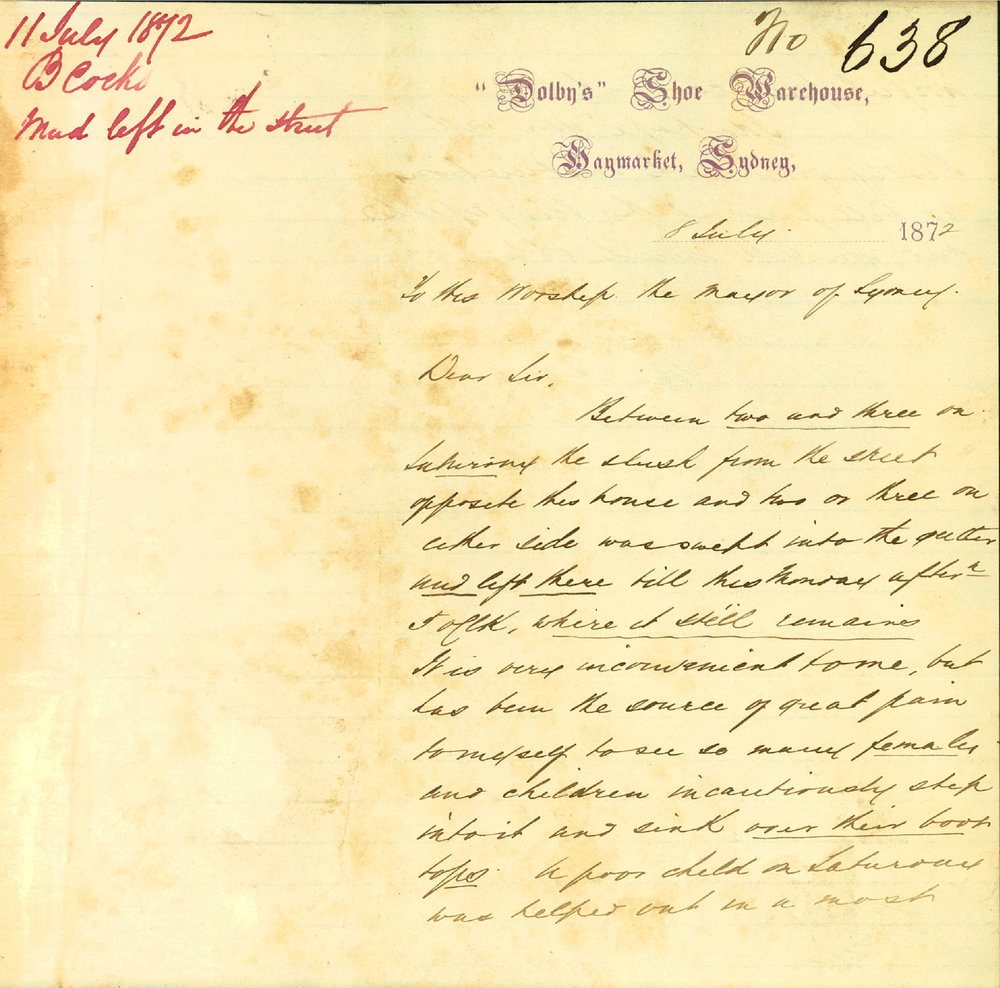 11 July 1872
B Cocks
Mud left in the street
No 638
"Dolby's" Shoe Warehouse,
Haymarket, Sydney,
8 July 1872
To His Worship the Mayor of Sydney.
Dear Sir,
Between two and three on
Saturday the slush from the street
opposite this house and two or three on
either side was swept into the gutter
and left there till this Monday aftern
oClk, where it still remains
It is very inconvenient to me, but
has been the source of great pain
to myself to see so many females
and children incautiously step
into it and sink over their boot
tops. A poor child on Saturday
was helped out in a most